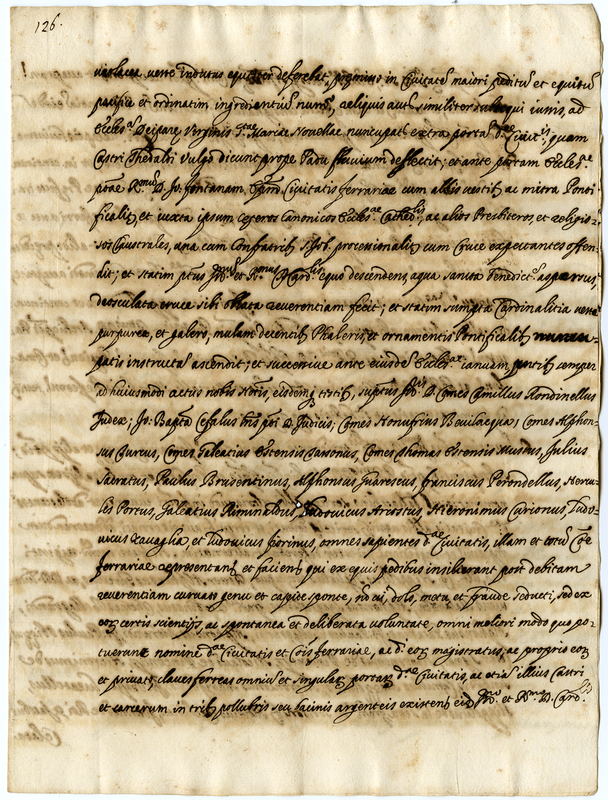 126.
violacea veste indutus equiter deferebat, p̃ominus in Civitate maiori peditũ et equitũ
pacifice et ordinatim ingredientiũ numº, reliquis autẽ similiter subsequi iussis, ad
Eccles.ã Deiparę Virginis S.tae Mariae Novellae nuncupatẽ extra portã d.ae Civit.is, quam
Castri Thedaldi vulgo dicunt prope Padũ fluvium deflectit; et ante portam Eccles.ae
R.mus D. Jo: fontanam, Civitatis ferrariae cum albis vestib. ac mitra Ponti-
ficalib. et iuxta ipsum Ceteros Canonicos Eccles.ae Cathed.lis, ac alios Presbiteros, et religio-
sos Claustrales, una cum Confratrib. processionalit. cum Cruce expectantes offen-
dit; et statim Ill.mus et R.mus D. Card.lis equo descendens, aqua sancta benedict. aspersus,
deosculata cruce sibi oblata reverentiam fecit; et statim sumpta Cardinalitia veste
purpurea, et galero, mulam decentib. Phaleris, et ornamentis Pontificalib. nuncu-
patis instructã ascendit; et successive ante eiusdẽ Eccles.ae ianuam, pñtib. semper
ad huiusmodi actus nobis Not.is, eisdemq. testib., Ill. D. Comes Camillus Rondinellus
Judex; Jo: Bapt.a Cefalus D. Judicis; Comes Honufrius Bevilaqua; Comes Alphon-
sus Turcus, Comes Galeatius Estensis Tassonus, Comes Thomas Estensis Mustus, Julius
Sadratus, Paulus Brusentinus, Alphonsus Guarescus, franciscus Perondellus, Hercu-
les Portus, Galeatius Riminaldus, Ludovicus Ariostus, Hieronimus Carionus, Ludo-
vicus Ravaglia, et Ludovicus fiorinus, omnes sapientes d.ae Civitatis, illam et totũ
ferrariae representant. et facient. qui ex equis pedibus insilierant post debitam
reverentiam curvato genu et capite sponte, nõ vi, dolo, metu et fraude seducti, sed ex
eoꝝ certis scientijs, ac spontanea et deliberata voluntate, omni meliori modo quo po-
tuerant nomine d.ae Civitatis et Cõis ferrariae, ac d.i eoꝝ magistratus, ac proprio eoꝝ
et privato, claves ferreas omniũ et singulaꝝ portaꝝ d.ae Civitatis, ac etiã illius Castri
et carcerum in trib. pollubris seu bacinis argenteis existent. eid. Ill.mo et R.mo D. Card.li